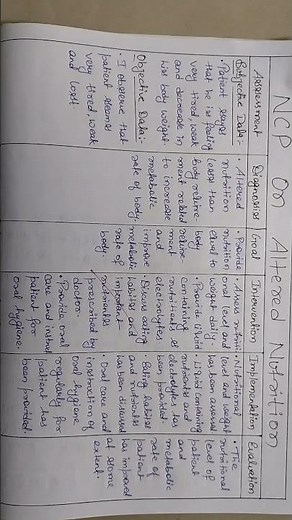 NCP On Altered Nutrition
Assessment
Subjective Data:-
• Patient says
that he is feeling
very tired, weak
and decrease in
his body weight
Objective Data:-
• I observe that
patient seemes
very tired, weak
and lost
Diagnosis
• Altered
nutrition
less than
body require-
ment related
to increase
metabolic
rate of body.
Goal
• Provide
nutrition
level
Equal to
body
require
ment
and
improve
metabolic
rate of
body.
Intervention
• Assess nutriti
onal level and
weight daily.
• Provide liquid
containing
nutrients &
electrolytes
• Discuss eating
habities and
important
nutrientes
prescribed by
doctor.
• Provide oral
care and instruct
patient for
oral hygiene.
Implementation
• Nutritional
level and weight
has been assessed
• Liquid containing
nutrientes and
electrolytes has
been provided
• Eating habities
and nutrientes
has been discussed
• Oral care and
instruction of
oral hygiene
regularly for
patient has
been provided.
Evaluation
• The
nutritional
level of
patient
and
metabolic
rate of
patient
has improved
at some
extent.